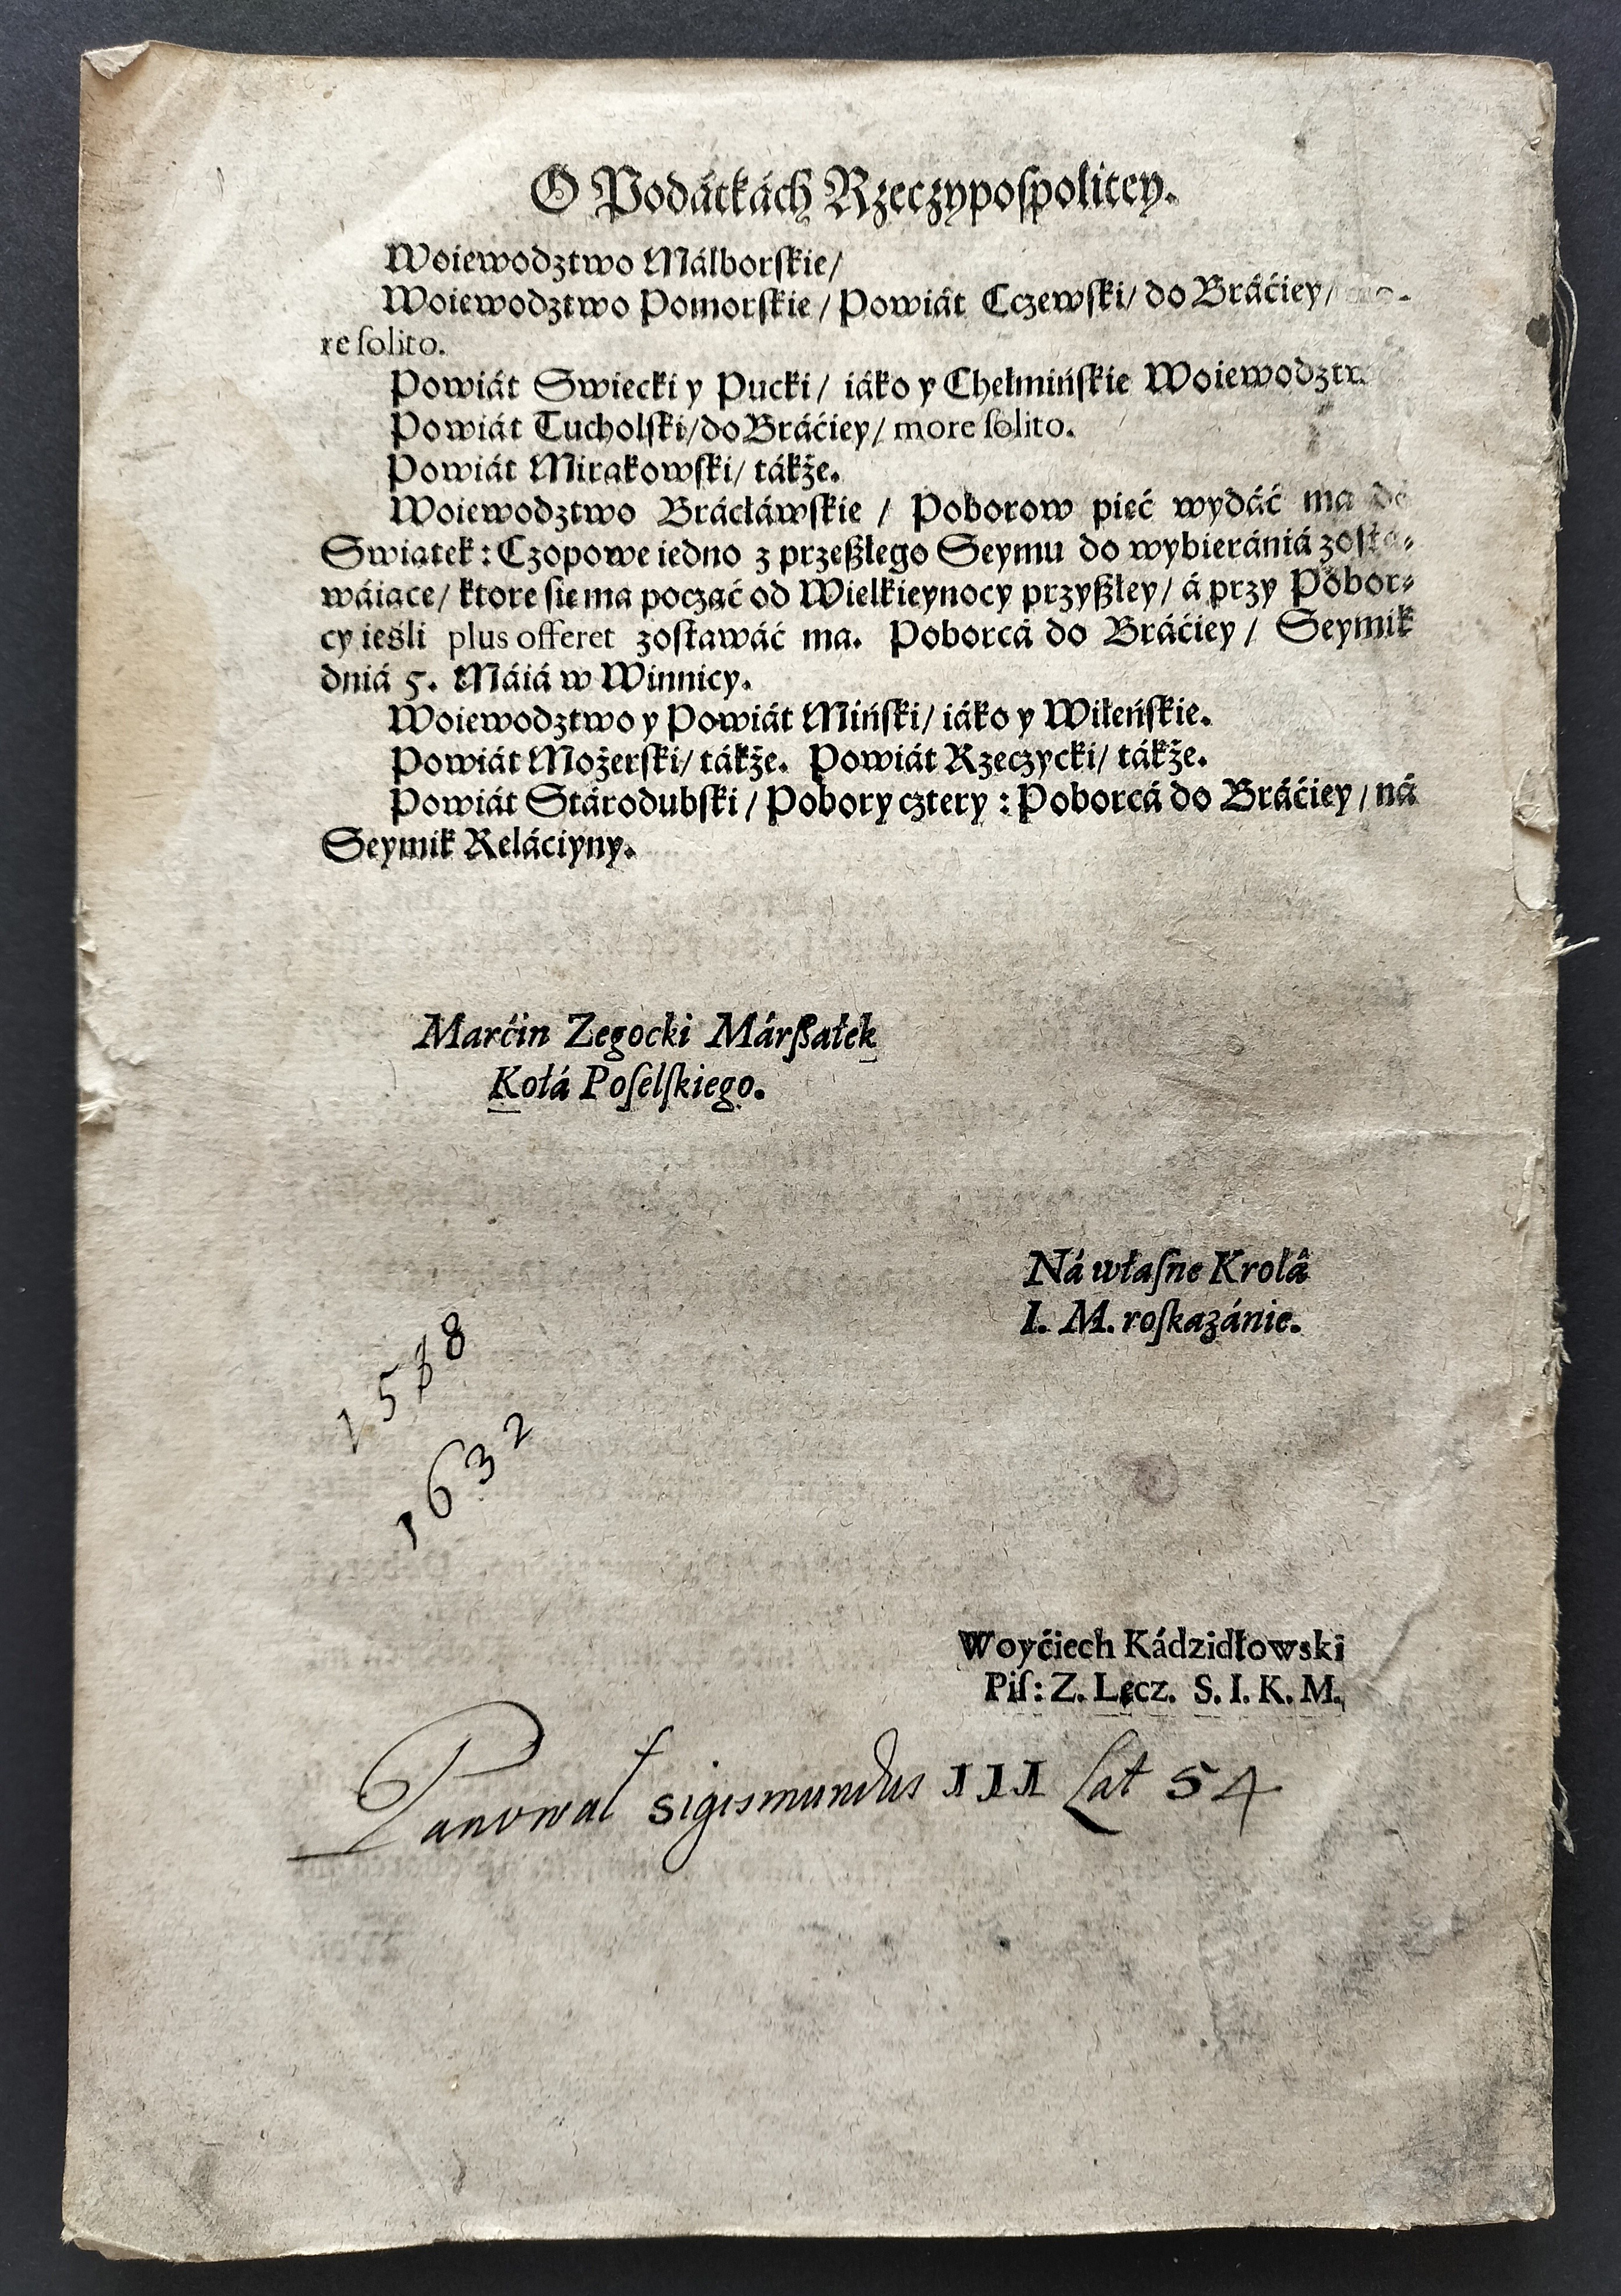 O Podátkách Rzeczypoſpolitey.
Woiewodztwo Málborſkie/
Woiewodztwo Pomorſkie / Powiát Tczewſki/ do Bráćiey/ mo-
re ſolito.
Powiát Swiecki y Pucki/ iáko y Chełmińſkie Woiewodztw
Powiát Tucholſki/do Bráćiey/ more ſolito.
Powiát Mirakowſki/ tákże.
Woiewodztwo Brácłáwſkie / Poborow pięć wydáć ma do
Swiątek: Czopowe iedno z przeßłego Seymu do wybieránia zoſtá-
wáiące/ ktore ſię ma począć od Wielkieynocy przyßłey/ á przy Pobor-
cy ieśli plus offeret zoſtawáć ma. Poborcá do Bráćiey / Seymik
dniá 5. Máiá w Winnicy.
Woiewodztwo y Powiát Mińſki/ iáko y Wileńſkie.
Powiát Możerſki/ tákże. Powiát Rzeczycki/ tákże.
Powiát Stárodubſki / Pobory cztery : Poborcá do Bráćiey / ná
Seymik Reláciyny.
Marćin Zegocki Márßałek
Kołá Poſelſkiego.
Ná właſne Krolá
I. M. roſkazánie.
1588
1632
Woyćiech Kádzidłowski
Piſ: Z. Lęcz. S. I. K. M.
Panował Sigismundus III Lat 54